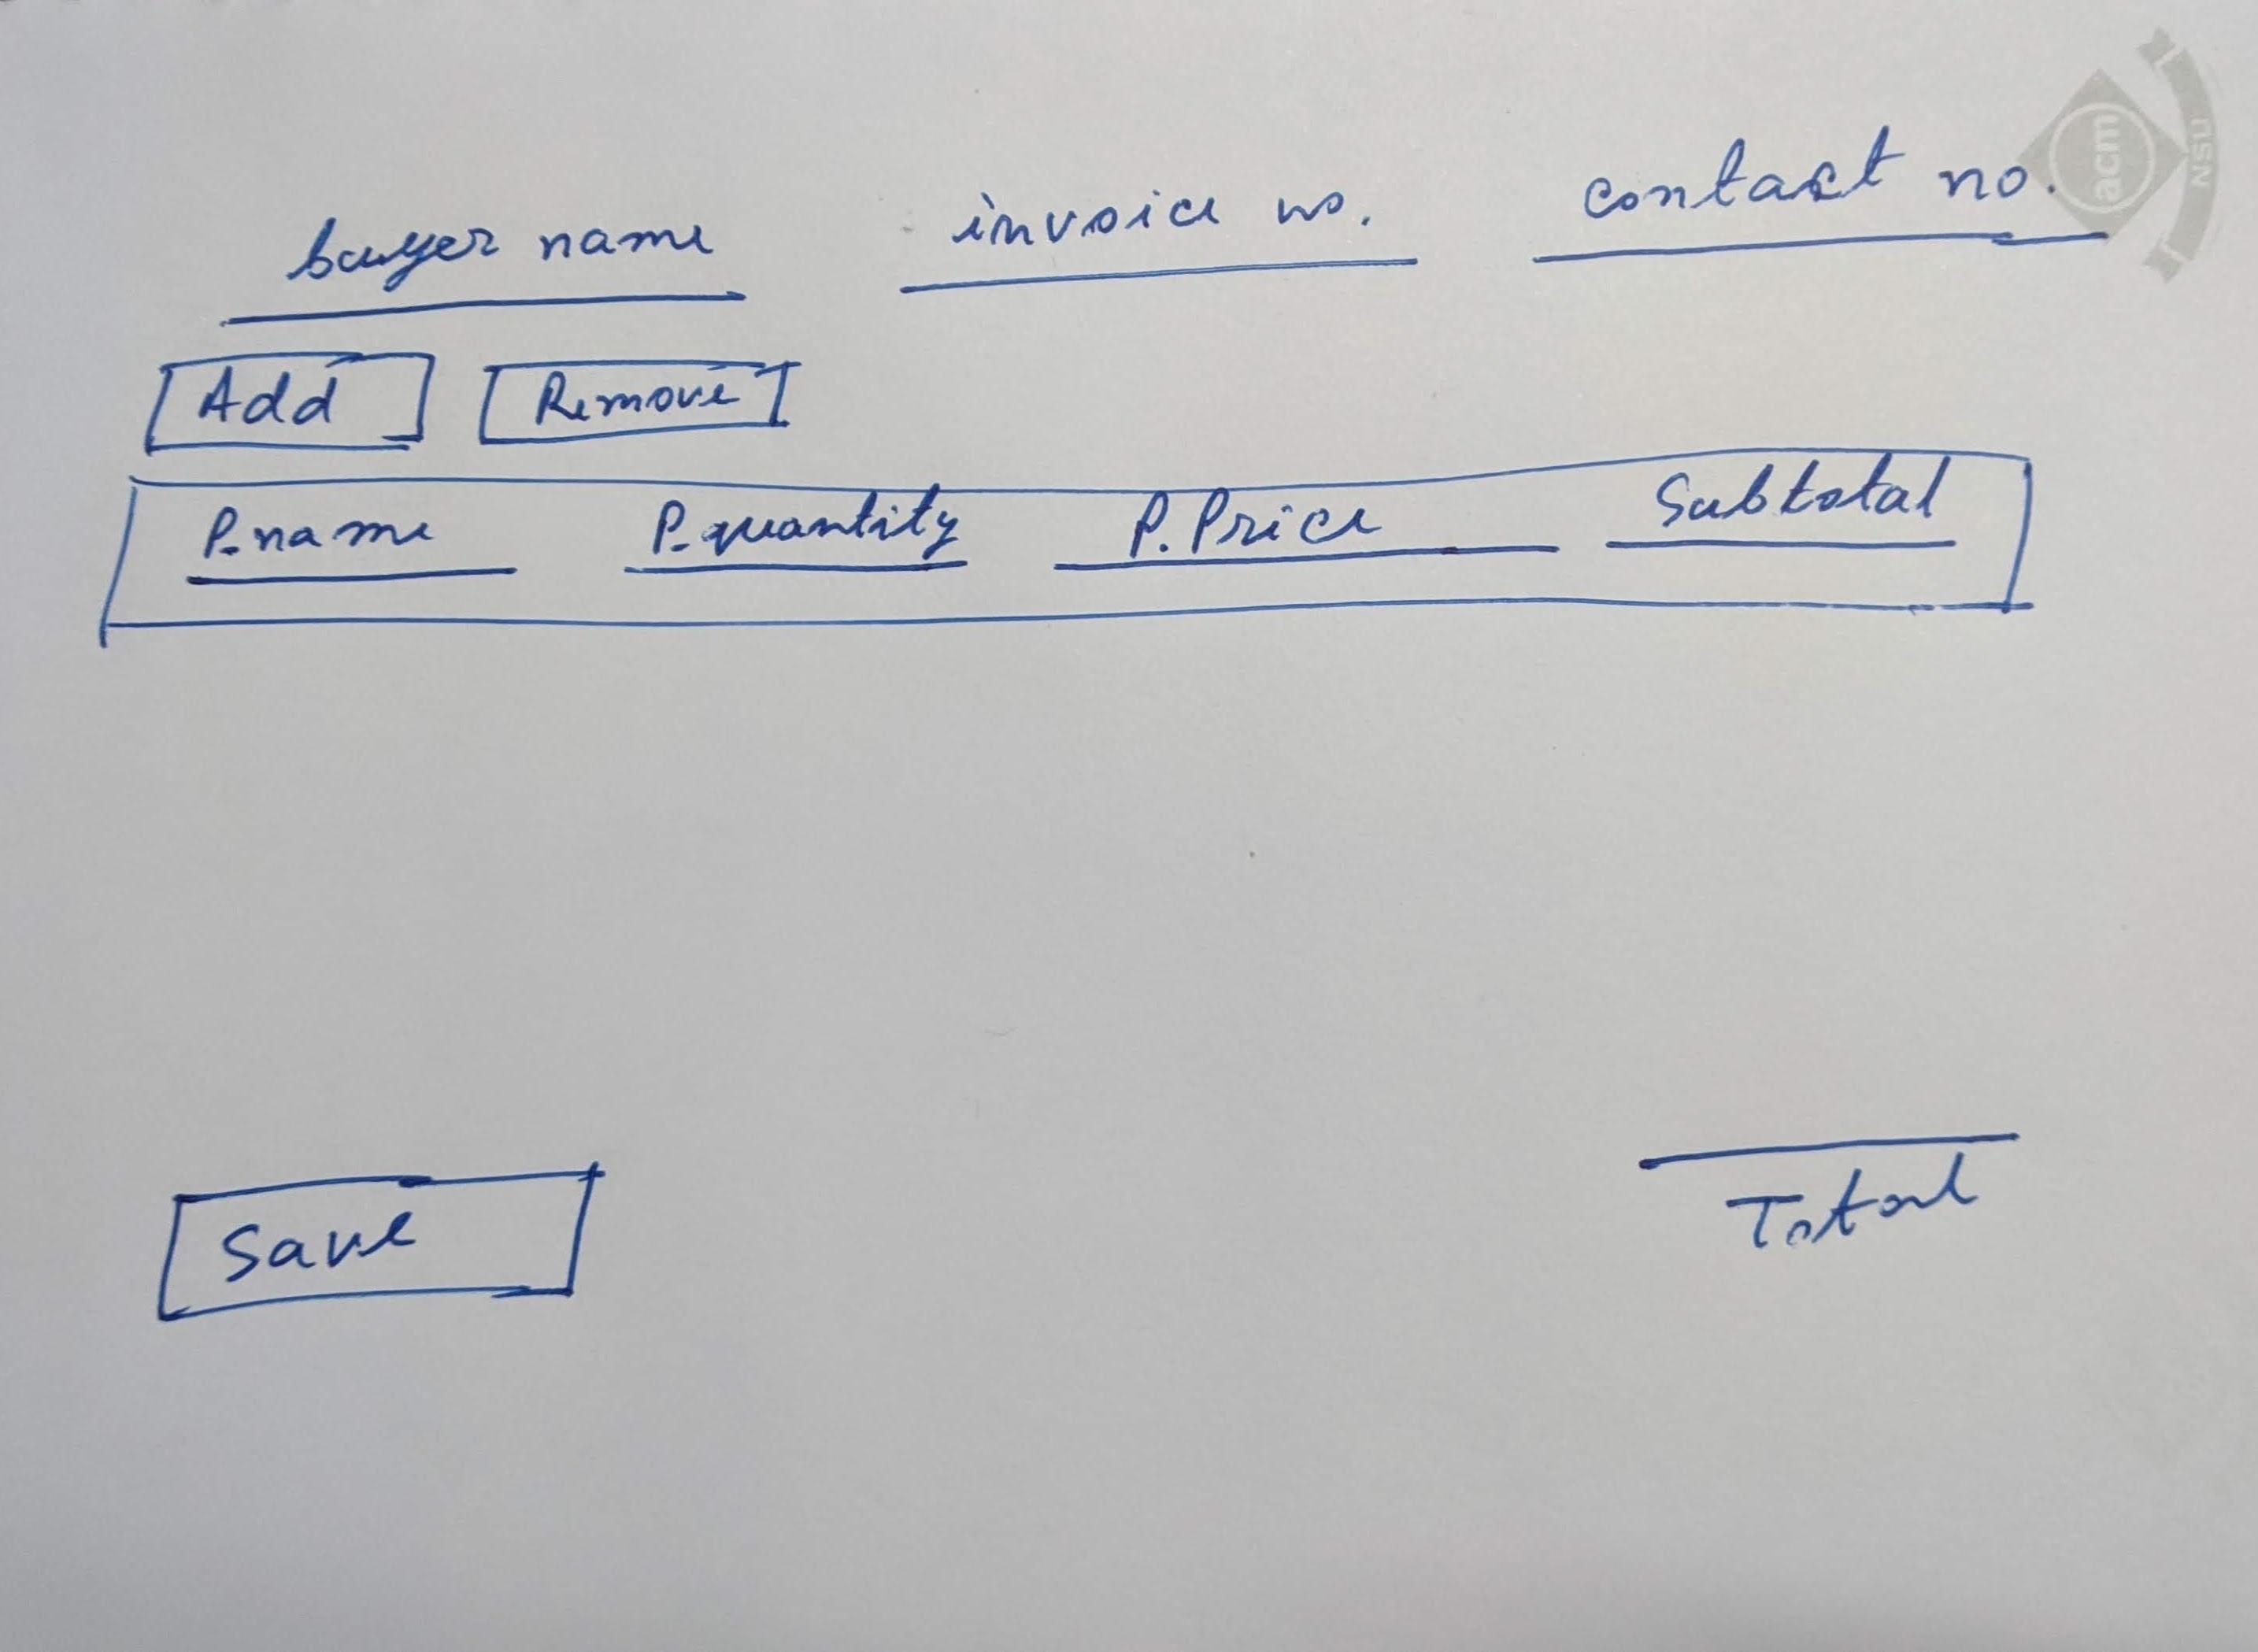 buyer name invoice no. contact no.
Add Remove
P.name P.quantity P.Price Subtotal
Save Total
acm
NSU